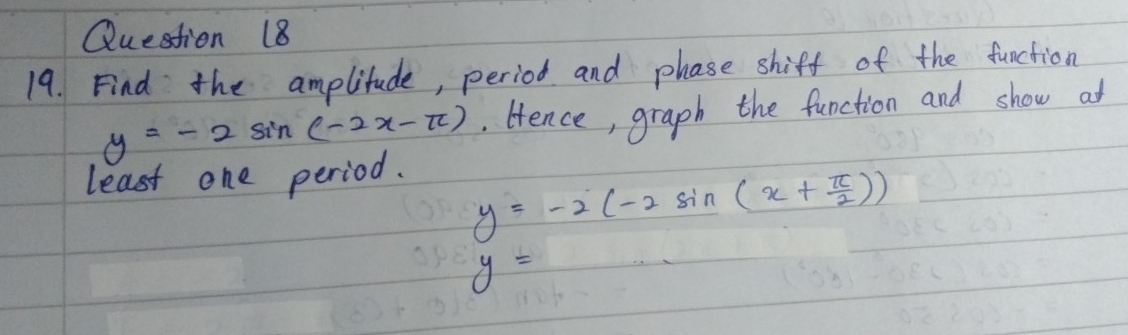 Question 18
19. Find the amplitude, period and phase shift of the function
y = -2 sin (-2x-π). Hence, graph the function and show at
least one period.
y = -2 (-2 sin (x + π/2))
y =